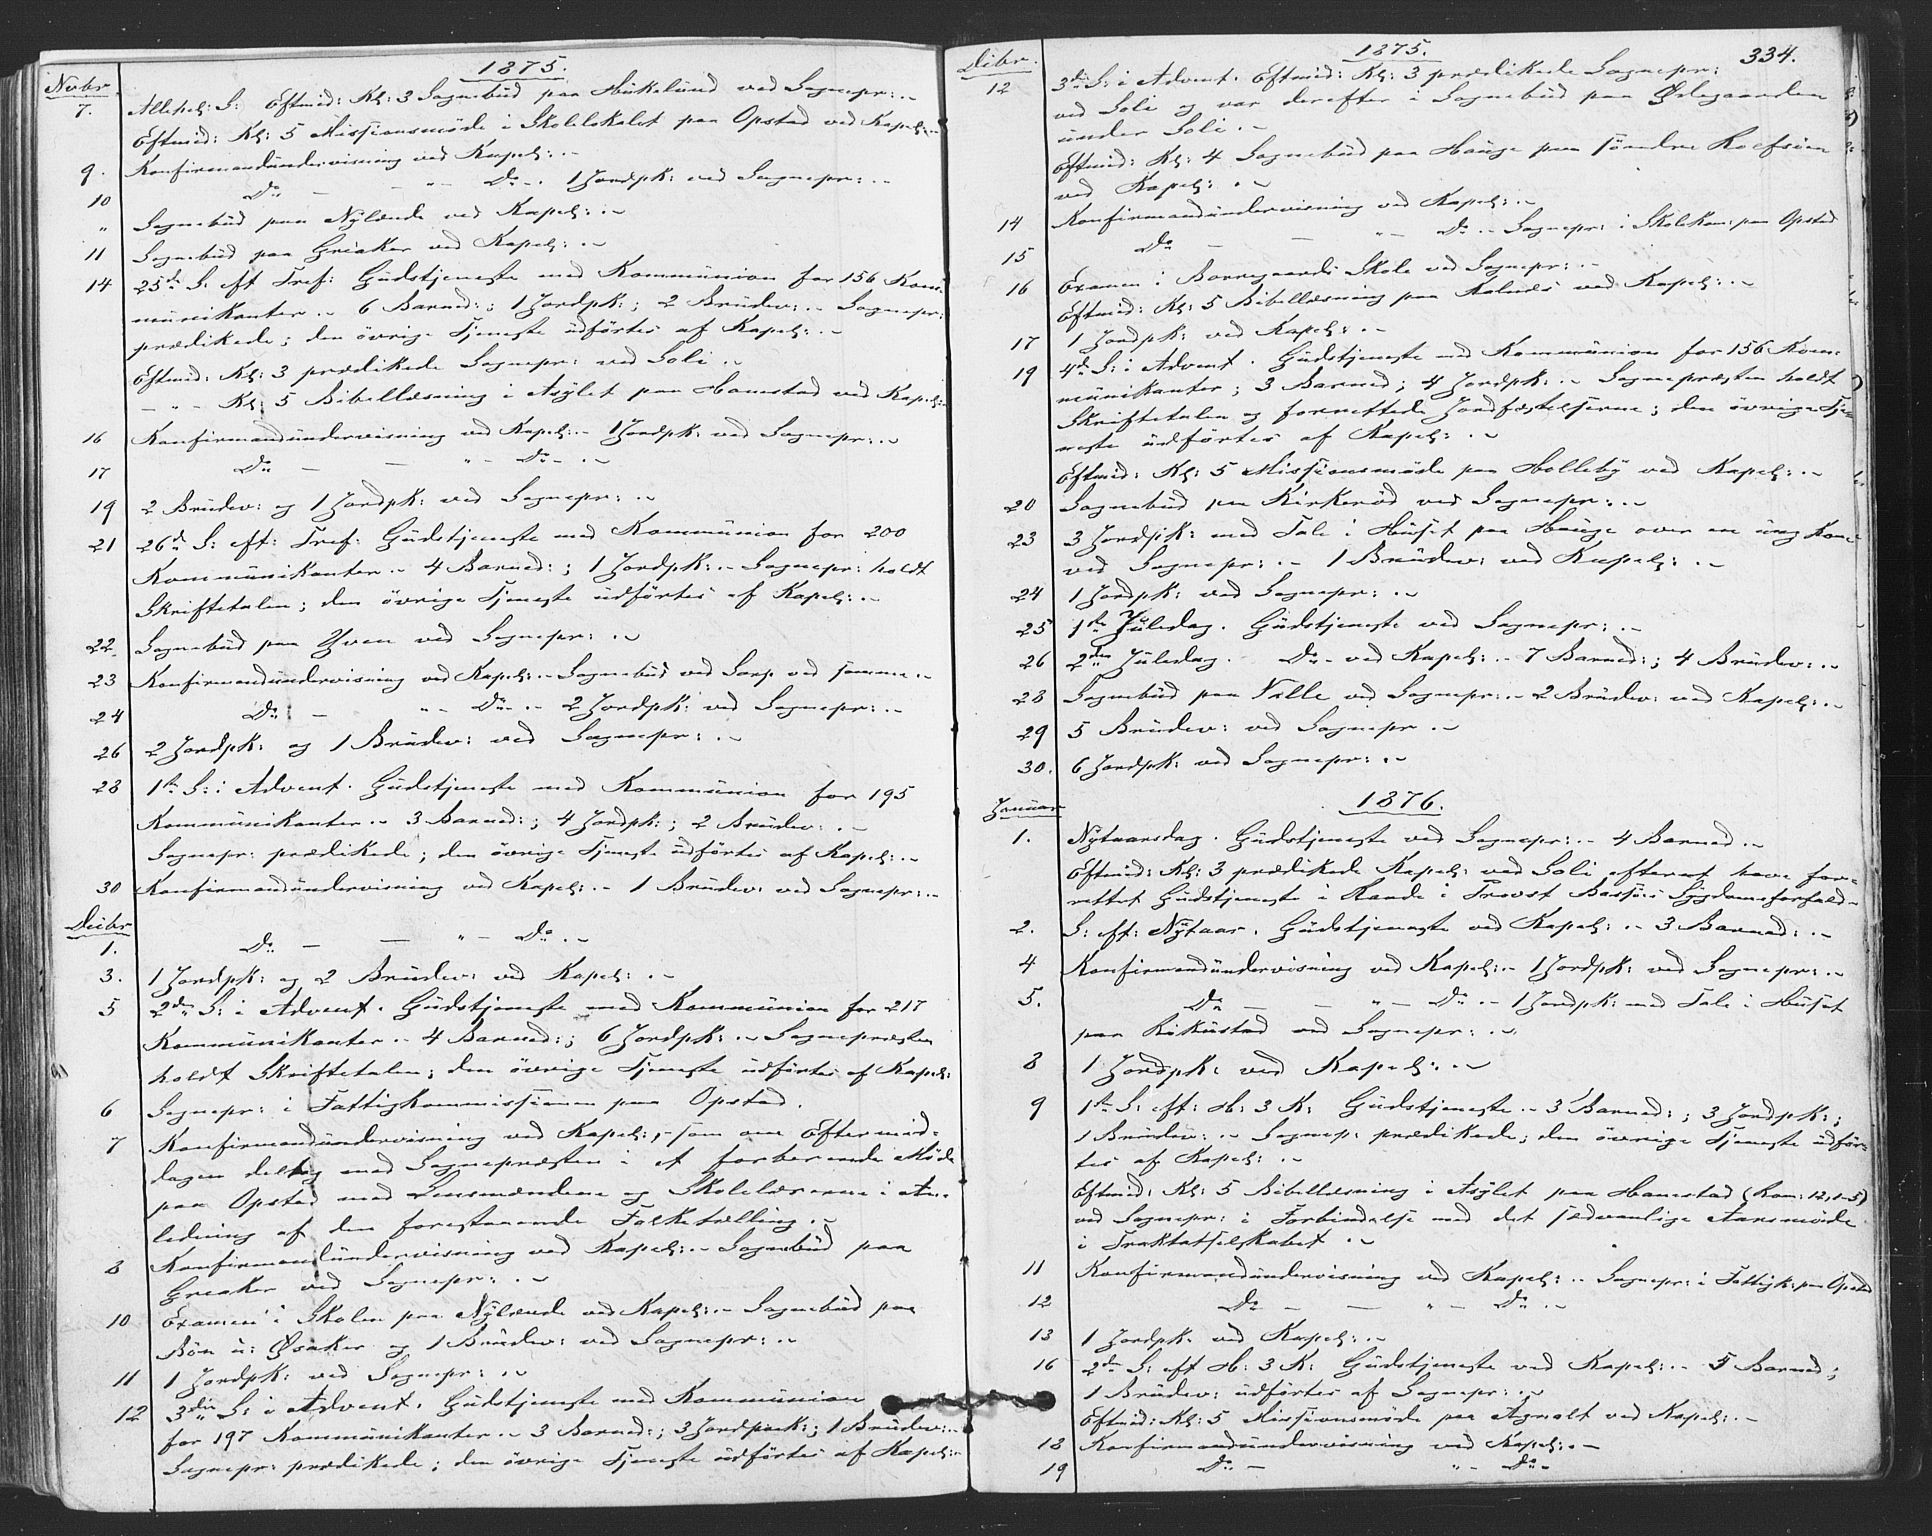 1875.
Novbr.
7. Allehel: S: Eftmid: Kl: 3 Sognebud paa Hukelund ved Sognepr: .-
Eftmid: Kl: 5 Missionsmöde i Skolelokalet paa Opstad ved Kapel: .-
9. Konfirmandundervisning ved Kapel: .-
10 Do — " - Do - . 1 Jordpk: ved Sognepr: .-
" Sognebud paa Nylænde ved Kapel: .-
11 Sognebud paa Greaker ved Kapel: .-
14 25de S: eft Tref: Gudstjeneste med Kommunion for 156 Kom-
munikanter .- 6 Barned: ; 1 Jordpk: ; 2 Brudev: .- Sognepr:
prædikede ; den övrige Tjeneste udförtes af Kapel: .-
Eftmid: Kl: 3 prædikede Sognepr: ved Soli .-
— " - Kl: 5 Bibellæsning i Asylet paa Hannestad ved Kapel: .-
16 Konfirmandundervisning ved Kapel: .- 1 Jordpk: ved Sognepr: .-
17 Do — — " - Do - .-
19 2 Brudev: og 1 Jordpk: ved Sognepr: .-
21 26de S: eft: Tref: Gudstjeneste med Kommunion for 200
Kommunikanter .- 4 Barned: ; 1 Jordpk: .- Sognepr: holdt
Skriftetalen ; den övrige Tjeneste udförtes af Kapel: .-
22. Sognebud paa Yven ved Sognepr: .-
23 Konfirmandundervisning ved Kapel: .- Sognebud ved Sarp ved samme .-
24 Do — " - Do - .- 2 Jordpk: ved Sognepr: .-
26 2 Jordpk: og 1 Brudev: ved Sognepr: .-
28 1ste S: i Advent. Gudstjeneste med Kommunion for 195
Kommunikanter .- 3 Barned: ; 4 Jordpk: ; 2 Brudev: .-
Sognepr: prædikede ; den övrige Tjeneste udförtes af Kapel: .-
30 Konfirmandundervisning ved Kapel: .- 1 Brudev: ved Sognepr: .-
Decbr
1. Do — — " - Do .-
3. 1 Jordpk: og 2 Brudev: ved Kapel: .-
5 2den S: i Advent. Gudstjeneste med Kommunion for 217
Kommunikanter .- 4 Barned: ; 6 Jordpk: .- Sognepræsten
holdt Skriftetalen ; den övrige Tjeneste udförtes af Kapel:
6 Sognepr: i Fattigkommissionen paa Opstad.
7 Konfirmandundervisning ved Kapel: , som om Eftermid-
dagen deltog med Sognepræsten i et forberedende Möde
paa Opstad med Lensmændene og Skolelærerne i An-
ledning af den forestaaende Folketælling .-
8 Konfirmandundervisning ved Kapel: .- Sognebud paa
Greaker ved Sognepr: .-
10 Examen i Skolen paa Nylænde ved Kapel: .- Sognebud paa
Bön u: Öraker og 1 Brudev: ved Sognepr: .-
11 1 Jordpk: ved Sognepr: .-
12 3die S: i Advent. Gudstjeneste med Kommunion
for 197 Kommunikanter .- 3 Barned: ; 3 Jordpask: ; 1 Brudev: .-
Sognepr: prædikede ; den övrige Tjeneste udförtes af Kapel: .-
1875. 334.
Decbr.
12 3die S: i Advent. Eftmid: Kl: 3 prædikede Sognepr:
ved Soli og var derefter i Sognebud paa Ödegaarden
under Soli .-
Eftmid: Kl: 4 Sognebud paa Hauge paa söndre Rolfsöen
ved Kapel: .-
14 Konfirmandundervisning ved Kapel: .-
15 Do — — " - Do .- Sognepr: i Skolekom: paa Opstad
16 Examen i Borregaards Skole ved Sognepr: .-
Eftmid: Kl: 5 Bibellæsning paa Kalnæs ved Kapel: .-
17 1 Jordpk: ved Kapel: .-
19 4de S: i Advent. Gudstjeneste med Kommunion for 156 Kom-
munikanter ; 3 Barned: ; 4 Jordpk: .- Sognepræsten holdt
Skriftetalen og forrettede Jordfæstelserne ; den övrige Tje-
neste udförtes af Kapel: .-
Eftmid: Kl: 5 Missionsmöde paa Holleby ved Kapel: .-
20 Sognebud paa Kirkeröd ved Sognepr: .-
23 3 Jordpk: med Tale i Huset paa Hauge over en ung Kone
ved Sognepr: .- 1 Brudev: ved Kapel: .-
24 1 Jordpk: ved Sognepr: .-
25 1ste Juledag. Gudstjeneste ved Sognepr: .-
26 2den Juledag. Do - ved Kapel: .- 7 Barned: ; 4 Brudev: .-
28 Sognebud paa Valle ved Sognepr: .- 2 Brudev: ved Kapel: .-
29 5 Brudev: ved Sognepr .-
30. 6 Jordpk: ved Sognepr: .-
1876.
Januar
1. Nytaarsdag. Gudstjeneste ved Sognepr: .- 4 Barned .-
Eftmid: Kl: 3 prædikede Kapel: ved Soli efterat have for-
rettet Gudstjeneste i Raade i Provst Bassöes Sygdomsforfald .-
2. S: eft: Nytaar. Gudstjeneste ved Kapel: .- 3 Barned: .-
4 Konfirmandundervisning ved Kapel: .- 1 Jordpk: ved Sognepr: .-
5. Do — — " - Do .- 1 Jordpk: med Tale i Huset
paa Rökustad ved Sognepr: .-
8 1 Jordpk: ved Kapel: .-
9 1ste S: eft: H: 3 K: Gudstjeneste .- 3 Barned: ; 3 Jordpk: ;
1 Brudev: .- Sognep: prædikede ; den övrige Tjeneste udför-
tes af Kapel: .-
Eftmid: Kl: 5 Bibellæsning i Asylet paa Hannestad (Rom: 12, 1-5)
ved Sognepr: i Forbindelse med det sædvanlige Aarsmöde
i Traktatselskabet .-
11 Konfirmandundervisning ved Kapel: .- Sognepr: i Fattigk: paa Opstad
12 Do — — " - Do .-
13 1 Jordpk: ved Kapel: .-
16 2den S: eft H: 3 K: Gudstjeneste ved Kapel: .- 5 Barned: ;
1 Brudev: udförtes af Sognepr: .-
Eftmid: Kl: 5 Missionsmöde paa Agnalt ved Kapel: .-
18 Konfirmandundervisning ved Kapel: .-
19 Do — " - Do -